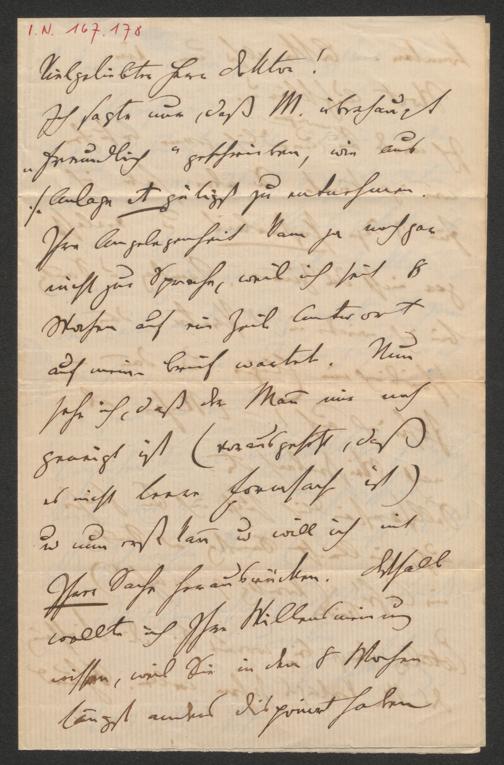 I.N. 167.178
Vielgeliebter Herr Doktor!
Ich sagte nur, daß M. überhaupt
„freundlich“ geschrieben, wie aus
·/. Anlage A gütigst zu entnehmen.
Ihre Angelegenheit kam ja noch gar
nicht zur Sprache, weil ich seit 8
Wochen auf ein Zeile Antwort
auf meinen Brief wartet. Nun
sehe ich, daß der Mañ mir noch
geneigt ist (vorausgesetzt, daß
es nicht leere Formsach ist)
u nun erst kañ u will ich mit
Ihrer Sache herausrücken. Deshalb
wollte ich Ihre Willensmeinung
wissen, weil Sie in den 8 Wochen
längst anders disponiert haben